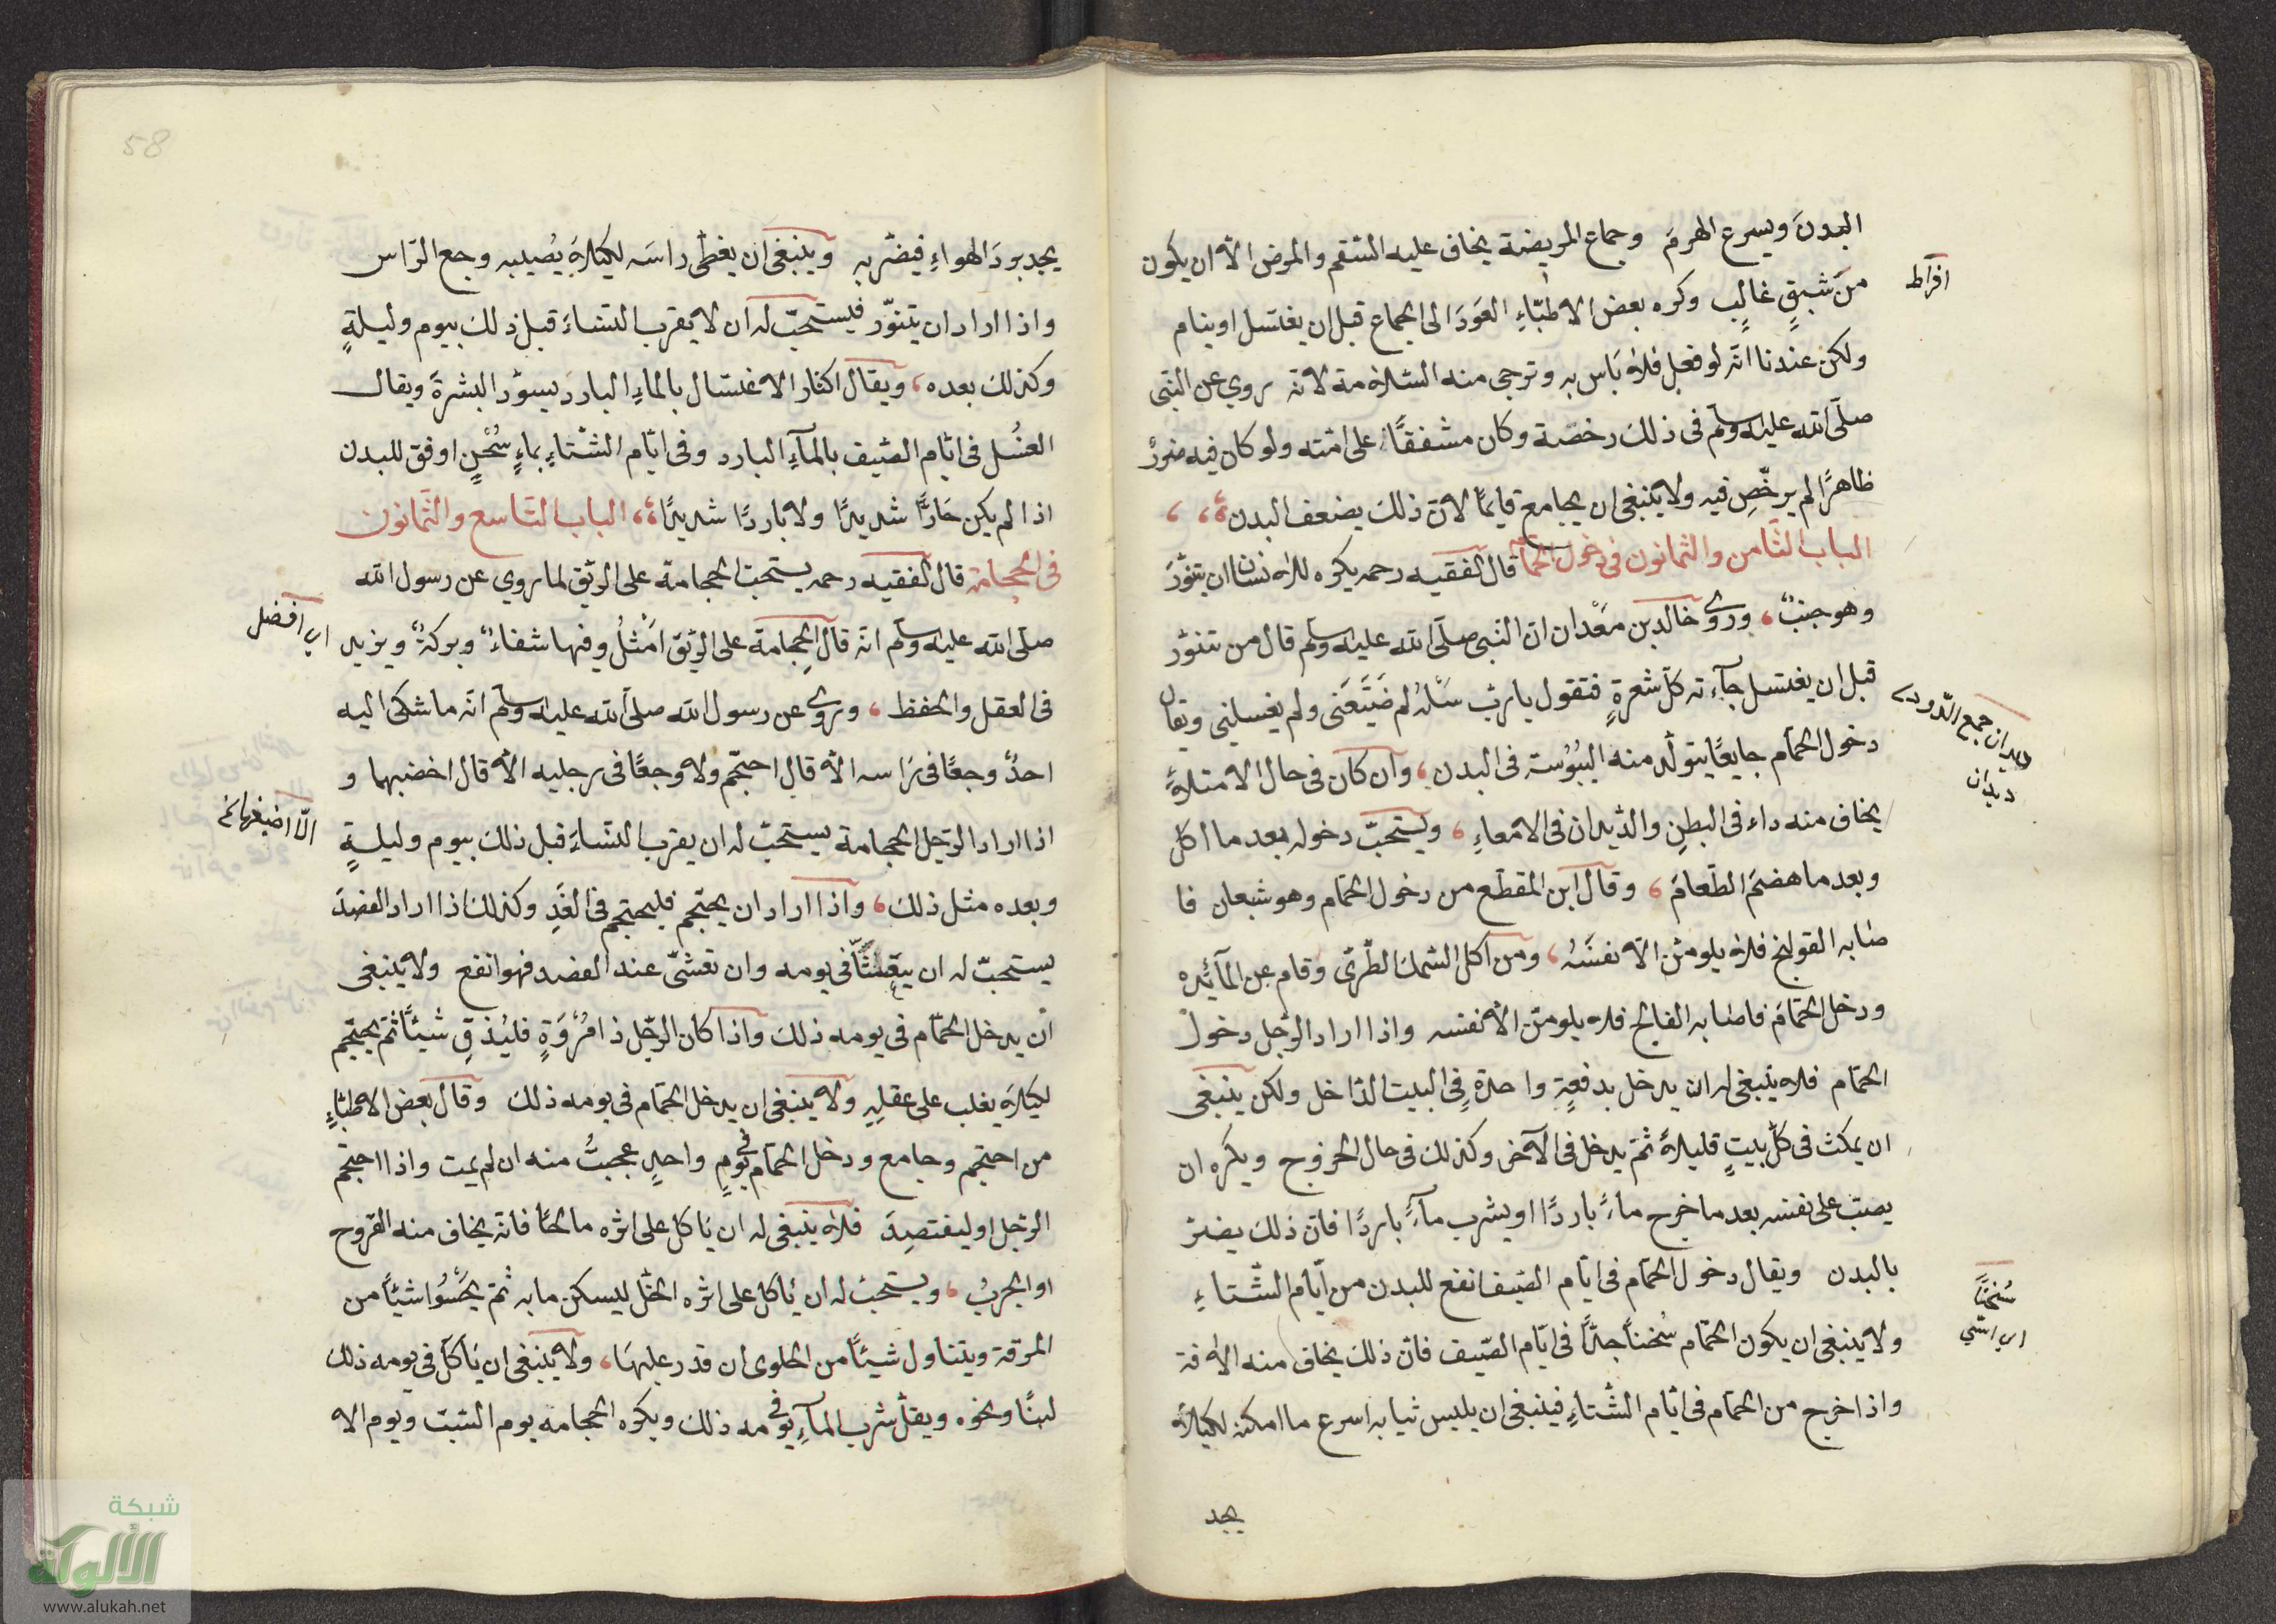 البدن ويسرع الهرم وجماع المريضة يخاف عليه السقم والمرض الا ان يكون
من شبق غالب وكره بعض الاطباء العود الى الجماع قبل ان يغتسل او ينام
افراط
ولكن عندنا انه لو فعل فلا بأس به وترجى منه السلامة لانه روي عن النبى
صلى الله عليه وسلم فى ذلك رخصة وكان مشفقا على امته ولو كان فيه ضرر
ظاهرا لم يرخص فيه ولا ينبغى ان يجامع قايما لان ذلك يضعف البدن
الباب الثامن والثمانون فى دخول الحمام قال الفقيه رحمه يكره للانسان ان يتنور
وهو جنب وروى خالد بن معدان ان النبى صلى الله عليه وسلم قال من تنور
قبل ان يغتسل جآءته كل شعرة فتقول يا رب سله لم ضيعنى ولم يغسلنى ويقال
ديدان جمع الدود
ديدان
دخول الحمام جايعا يتولد منه اليبوسة فى البدن وان كان فى حال الامتلاء
يخاف منه داء فى البطن والديدان فى الامعاء ويستحب دخوله بعد ما اكل
وبعد ما هضم الطعام وقال ابن المقطع من دخول الحمام وهو شبعان فا
صابه القولنج فلا يلومن الا نفسه ومن اكل السمك الطرى وقام عن المآئدة
ودخل الحمام فاصابه الفالج فلا يلومن الا نفسه واذا اراد الرجل دخول
الحمام فلا ينبغى له ان يدخل بدفعة واحدة فى البيت الداخل ولكن ينبغى
ان يمكث فى كل بيت قليلا ثم يدخل فى الآخر وكذلك فى حال الخروج ويكره ان
يصب على نفسه بعد ما خرج ماء باردا او يشرب مآء باردا فان ذلك يضر
بالبدن ويقال دخول الحمام فى ايام الصيف انفع للبدن من ايام الشتاء
سخنا
اى اسّى
ولا ينبغى ان يكون الحمام سخنا جدا فى ايام الصيف فان ذلك يخاف منه الافة
واذا خرج من الحمام فى ايام الشتاء فينبغى ان يلبس ثيابه اسرع ما امكنه لكيلا
يجد
58
يجد برد الهواء فيضر به وينبغى ان يغطى راسه لكيلا يصيبه وجع الراس
واذا اراد ان يتنور فيستحب له ان لا يقرب النساء قبل ذلك بيوم وليلة
وكذلك بعده ويقال اكثار الاغتسال بالماء البارد يسود البشرة ويقال
الغسل فى ايام الصيف بالمآء البارد وفى ايام الشتاء بماء سخن اوفق للبدن
اذا لم يكن حارا شديدا ولا باردا شديدا الباب التاسع والثمانون
فى الحجامة قال الفقيه رحمه يستحب الحجامة على الريق لما روي عن رسول الله
صلى الله عليه وسلم انه قال الحجامة على الريق امثل وفيها شفاء وبركة ويزيد
اى افضل
فى العقل والحفظ ويروى عن رسول الله صلى الله عليه وسلم انه ما شكى اليه
احد وجعا فى راسه الا قال احتجم ولا وجعا فى رجليه الا قال اخضبهما و
اذا اراد الرجل الحجامة يستحب له ان يقرب النساء قبل ذلك بيوم وليلة
وبعده مثل ذلك واذا اراد ان يحتجم فليحتجم فى الغد وكذلك اذا اراد الفصد
يستحب له ان فى يومه وان تعشى عند الفصد فهو انفع ولا ينبغى
ان يدخل الحمام فى يومه ذلك واذا كان الرجل ذا مروة فليذق شيئا ثم يحتجم
لكيلا يغلب على عقله ولا ينبغى ان يدخل الحمام فى يومه ذلك وقال بعض الاطباء
من احتجم وجامع ودخل الحمام فى يوم واحد عجبت منه ان لم يمت واذا احتجم
الرجل او ليفتصد فلا ينبغى له ان ياكل على اثره مالحا فانه يخاف منه القروح
او الجرب ويستحب له ان ياكل على اثره الخل ليسكن ما به ثم يحسوا شيئا من
المرقة ويتناول شيئا من الحلوى ان قدر عليها ولا ينبغى ان ياكل فى يومه ذلك
لبنا ونحوه ويقل شرب المآء فى يومه ذلك ويكره الحجامه يوم السبت ويوم الا
شبكة
الألوكة
www.alukah.net